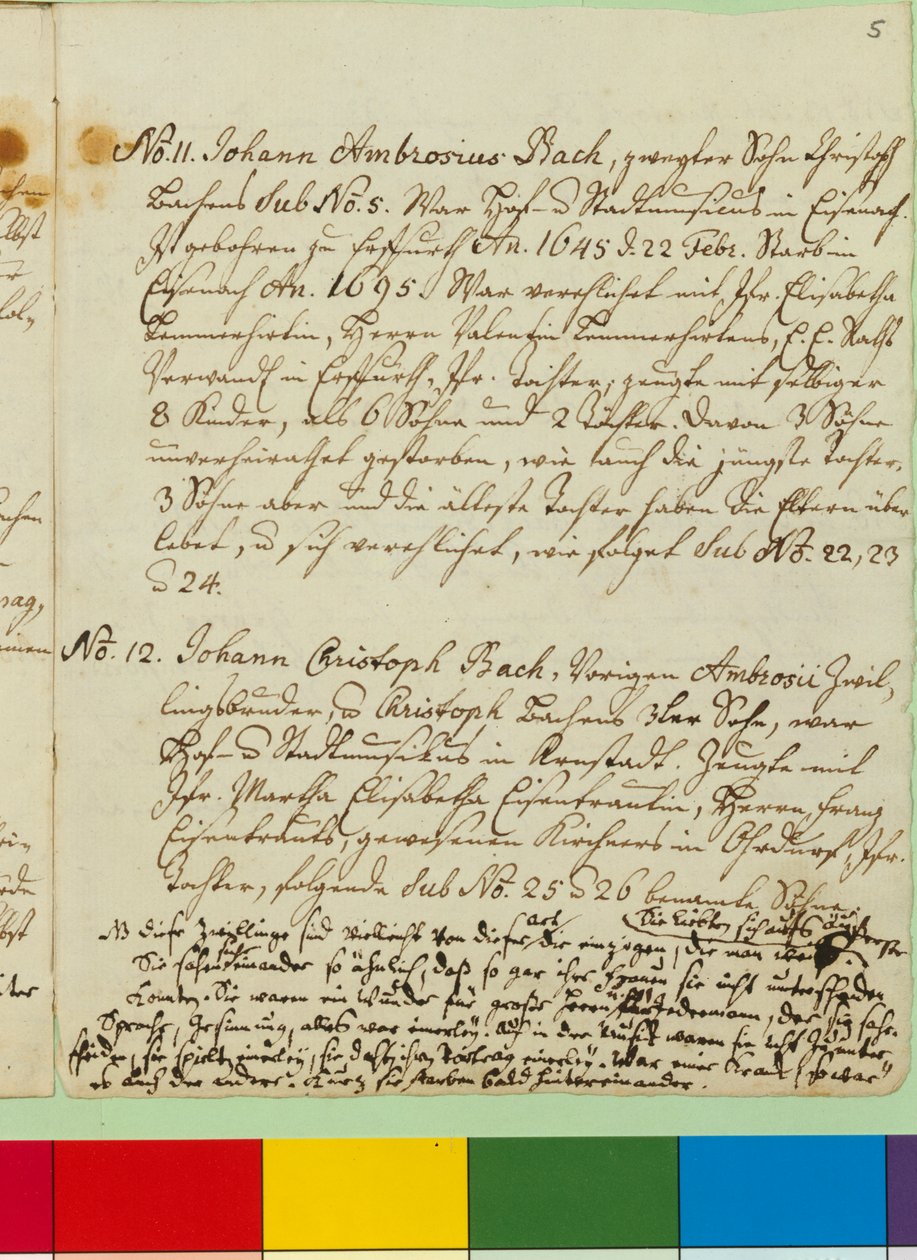 5
No. 11. Johann Ambrosius Bach, zweyter Sohn Christoph
Bachens Sub No. 5. War Hof- u Stadtmusicus in Eisenach.
Ist gebohren zu Erffurth An. 1645 d. 22 Febr. Starb in
Eisenach An. 1695. War verehlichet mit Jfr. Elisabetha
Lemmerhirtin, Herrn Valentin Lemmerhirtens, E. E. Raths
Verwandt in Erffurth, Jfr. Tochter; zeugte mit selbiger
8 Kinder, als 6 Söhne und 2 Töchter. Davon 3 Söhne
unverheirathet gestorben, wie auch die jüngste Tochter,
3 Söhne aber und die älteste Tochter haben die Eltern über
lebet, u sich verehlichet, wie folget Sub No. 22, 23
u 24.
No. 12. Johann Christoph Bach, Vorigen Ambrosii Zwil-
lingsbruder, u Christoph Bachens 3ter Sohn, war
Hof- u Stadtmusikus in Arnstadt. Zeugte mit
Jfr. Martha Elisabetha Eisentrautin, Herrn Franz
Eisentrauts, gewesenen Kirchners in Ohrdurf, Jfr.
Tochter, folgende Sub No. 25 u 26 benamte Söhne.
NB diese Zwillinge sind vielleicht von dieser Art die einzigen, die man weiß. Sie liebten sich aufs äußerste
Sie sahen sich einander so ähnlich, daß so gar ihre Frauen sie nicht unterscheiden
konnten. Sie waren ein Wunder für große Herrn u für jedermann, der sie sahe.
Sprache, Gesinnung, alles war einerley. Auch in der Musik waren sie nicht zu unter
scheiden, sie spielten einerley, sie dachten ihren Vortrag einerley. War einer krank, so war
es auch der andere. Kurz sie starben bald hintereinander.